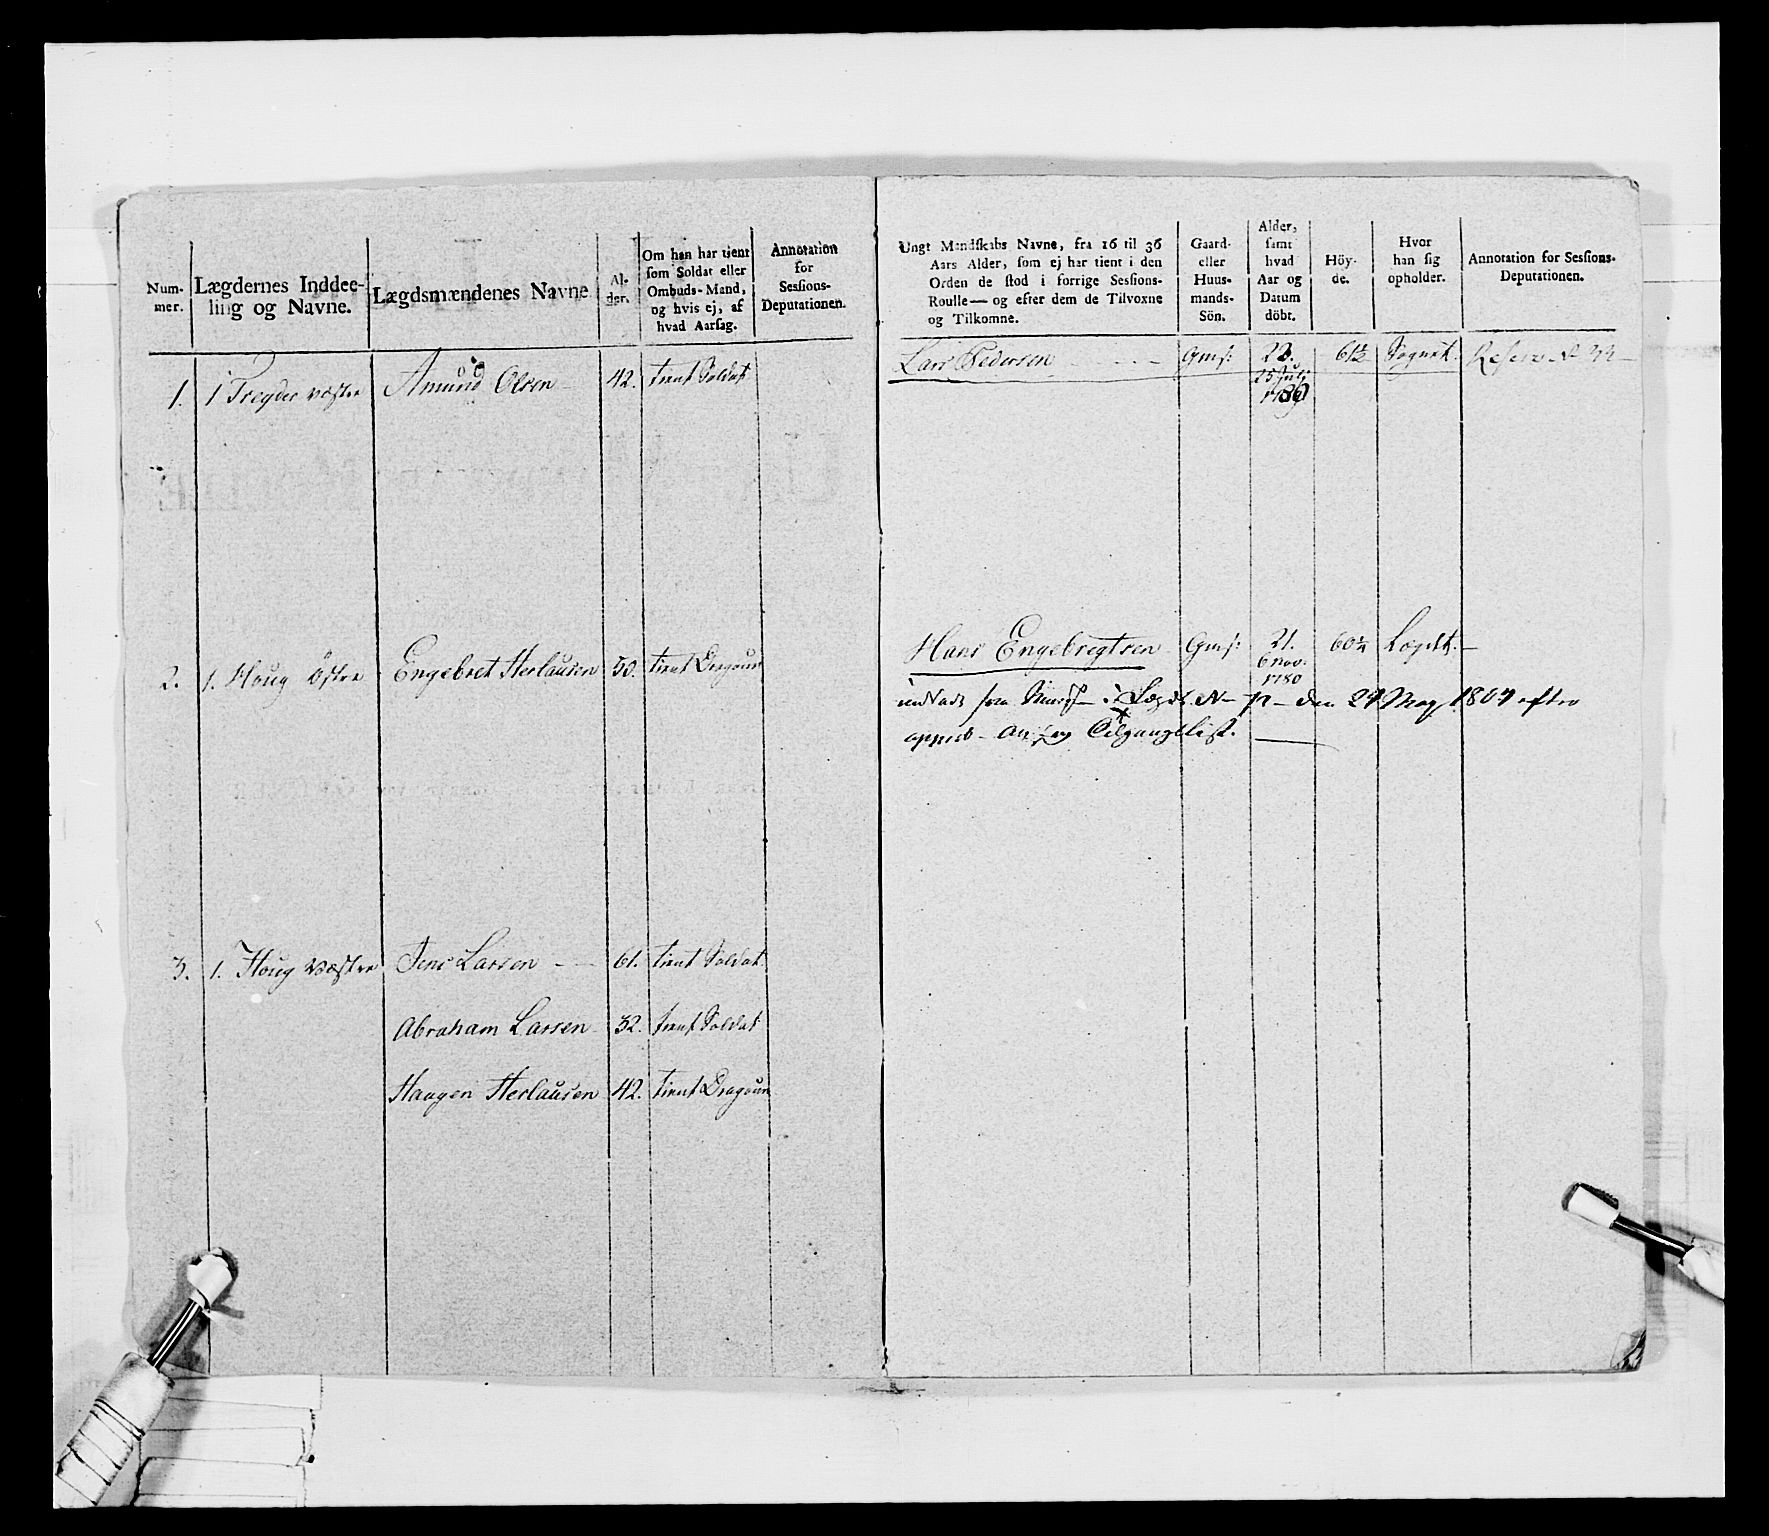 Num-
mer.
Lægdernes Inddee-
ling og Navne.
Lægdsmændenes Navne.
Al-
der.
Om han har tient
som Soldat eller
Ombuds-Mand,
og hvis ej, af
hvad Aarsag.
Annotation
for
Sessions-
Deputationen.
1. 1 Treyder væstre Amund Olsen 42. tient Soldat
2. 1. Houg östre Engebret Herlausen 50. tient Dragoun
3. 1. Houg væstre Jens Larsen 61. tient Soldat
Abraham Larsen 32. tient Soldat
Haagen Herlausen 42. tient Dragoun
Ungt Mandskabs Navne, fra 16 til 36
Aars Alder, som ej har tient i den
Orden de stod i forrige Sessions-
Roulle — og efter dem de Tilvoxne
og Tilkomne.
Gaard-
eller
Huus-
mands-
Sön.
Alder,
samt
hvad
Aar og
Datum
döbt.
Höy-
de.
Hvor
han sig
opholder.
Annotation for Sessions-
Deputationen.
Lars Pedersen Gmf: 22. 61½ Sognet.
25 Juli
Hans Engebregtsen Gmf: 21. 60¼ Lægdt.
6 Nov:
1780
i Lægdt N den 24 May 1804 efter
Tilgangslist.